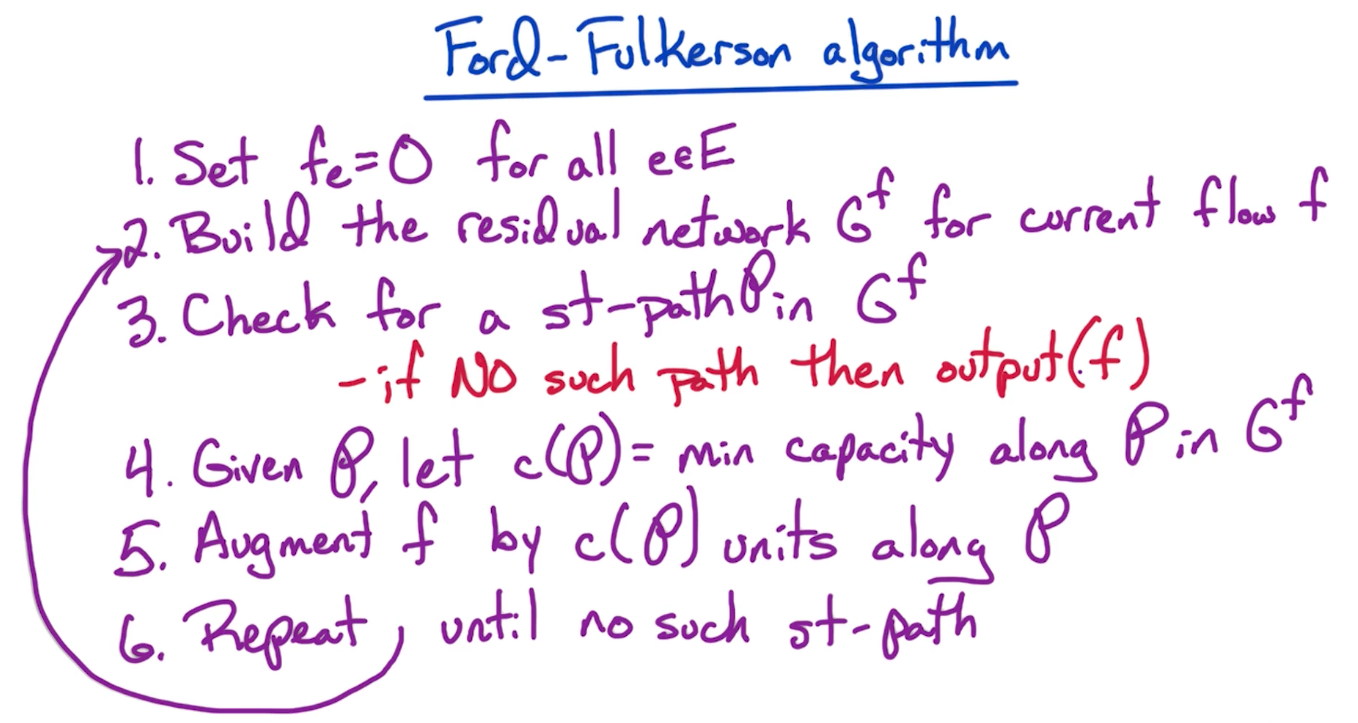 Ford-Fulkerson algorithm
1. Set fₑ=0 for all e∈E
2. Build the residual network Gᶠ for current flow f
3. Check for a st-path P in Gᶠ
- if NO such path then output(f)
4. Given P, let c(P)= min capacity along P in Gᶠ
5. Augment f by c(P) units along P
6. Repeat, until no such st-path